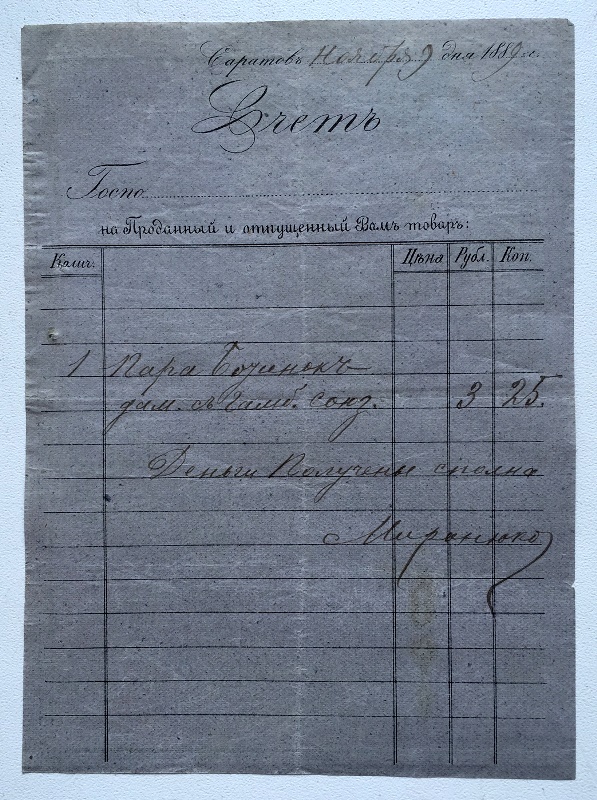 Саратовъ Ноября 9 дня 1889 г.
Счетъ
Госпо
на Проданный и отпущенный Вамъ товаръ:
Колич. Цѣна Рубл. Коп.
1 Пара Ботинокъ
дам. съ гамб. 3 25.
Деньги Получены сполна